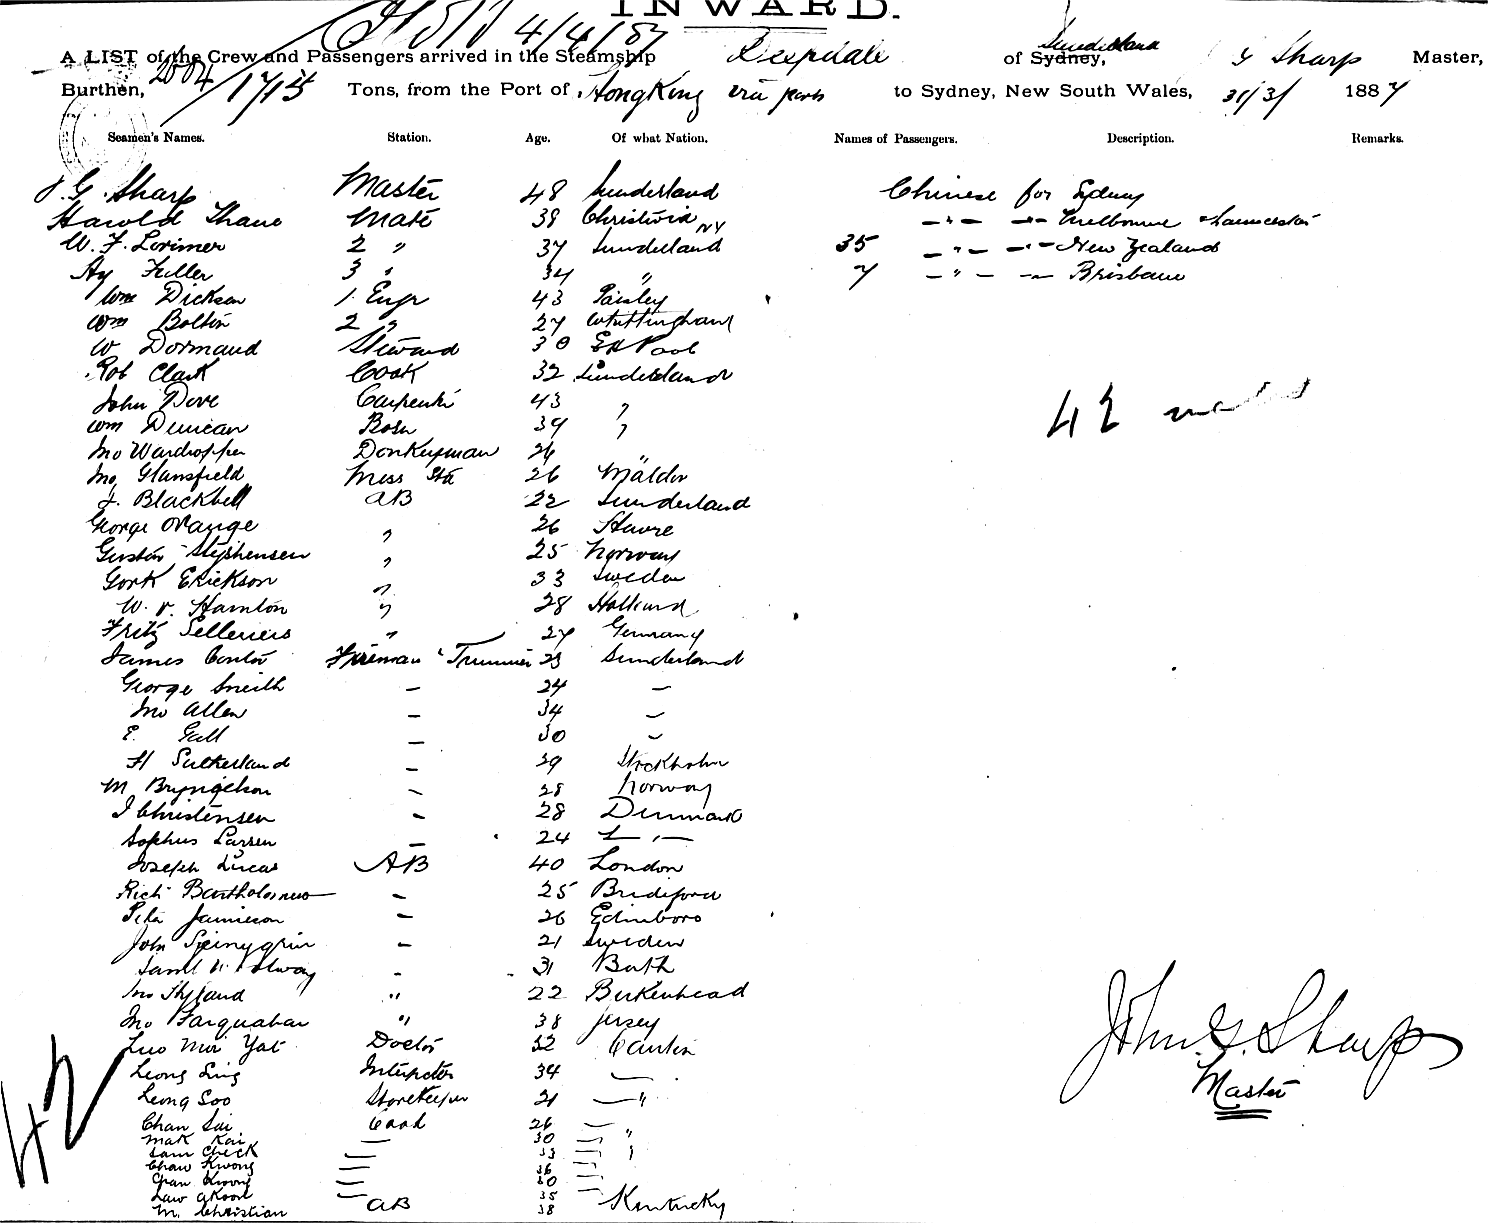 INWARD.
4/4/87
A LIST of the Crew and Passengers arrived in the Steamship Deepdale of Sydney, Sunderland J Sharp Master,
Burthen, 2004/1715 Tons, from the Port of HongKong via ports to Sydney, New South Wales, 31/3/ 1887
Seamen's Names. Station. Age. Of what Nation. Names of Passengers. Description. Remarks.
J. G. Sharp Master 48 Sunderland Chinese for Sydney
Harold Thane Mate 39 Christiania NY -"- -"- Melbourne & Launceston
W. F. Lorimer 2 " 37 Sunderland 35 -"- -"- New Zealand
Hy Fuller 3 " 34 " 7 -"- - Brisbane
Wm Dickson 1 Engr 43 Paisley
Wm Bolton 2 " 27 Whittingham
W Dormand Steward 30
Rob Clark Cook 32 Sunderland
John Dove Carpenter 43 "
Wm Duncan Bosn 39 "
Jno Wardropper Donkeyman 26 "
Jno Glansfield Mess Std 26 Maldon
J. Blackbell AB 22 Sunderland
George Orange " 26 Havre
Gustav Stephensen " 25 Norway
Erickson " 33 Sweden
W. v. Hamton " 28 Holland
Fritz " 27 Germany
James Fireman & Trimmer 23 Sunderland
George Smith – 24 –
Jno Allen – 34 –
E. Gall – 30 –
H Sutherland – 29 Stockholm
M Bryngelson – 28 Norway
J Christensen – 28 Denmark
Sophus Larsen – 24 – " –
Joseph Lucas AB 40 London
Rich Bartholomew – 25 Brideford
Peter Jamieson – 26 Edinboro
John – 21 Sweden
Saml – 31 Bath
Jno Hyland " 22 Birkenhead
Jno Farquahar " 38 Jersey
Luo Mir Yat Doctor 32 Canton
Leong Sing Interpreter 34 —
Leong Soo Storekeeper 21 — "
Chan Sai Cook 26 —
Mak Kai — 30 — "
Sam Cheek — 33 — "
Chan Kwong — 36 —
Kwong — 30 —
Law AKoon — 35 —
M. Christian AB 38 Kentucky
42
42
John G. Sharp
Master